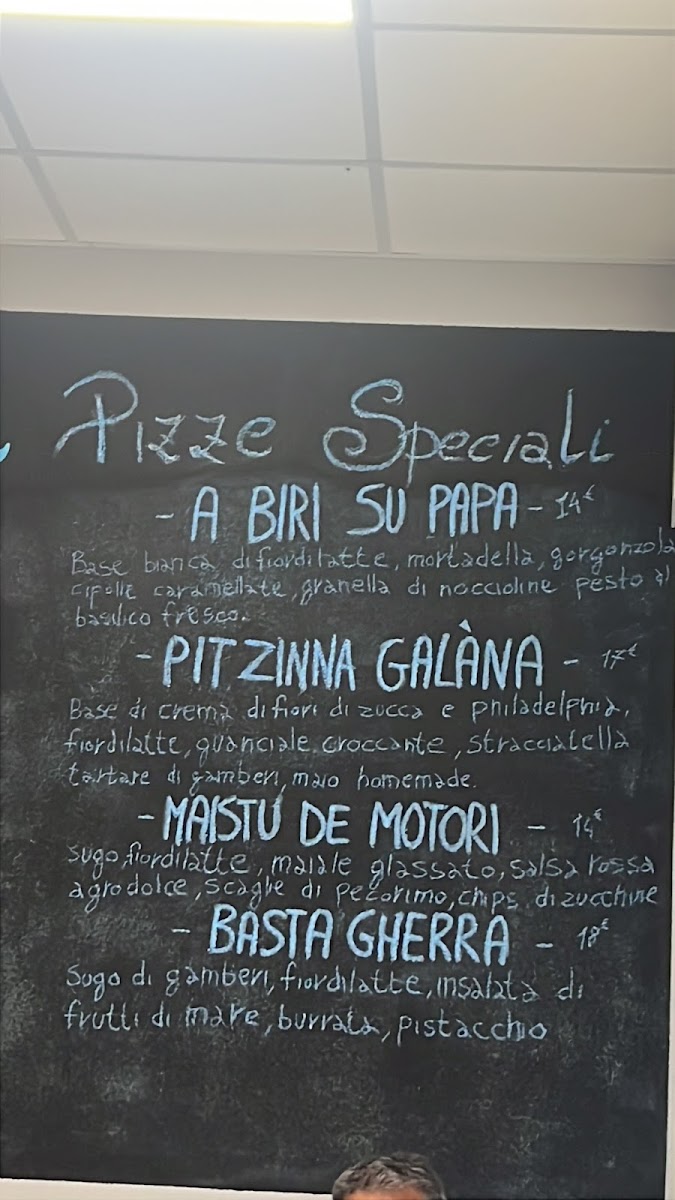 Pizze Speciali
- A BIRI SU PAPA - 14€
Base bianca di fiordilatte, mortadella, gorgonzola
cipolle caramellate, granella di noccioline pesto al
basilico fresco.
- PITZINNA GALÀNA - 17€
Base di crema di fiori di zucca e philadelphia,
fiordilatte, guanciale croccante, stracciatella
tartare di gamberi, maio homemade.
- MAISTU DE MOTORI - 14€
Sugo, fiordilatte, maiale glassato, salsa rossa
agrodolce, scaglie di pecorimo, chips di zucchine
- BASTA GHERRA - 18€
Sugo di gamberi, fiordilatte, insalata di
frutti di mare, burrata, pistacchio